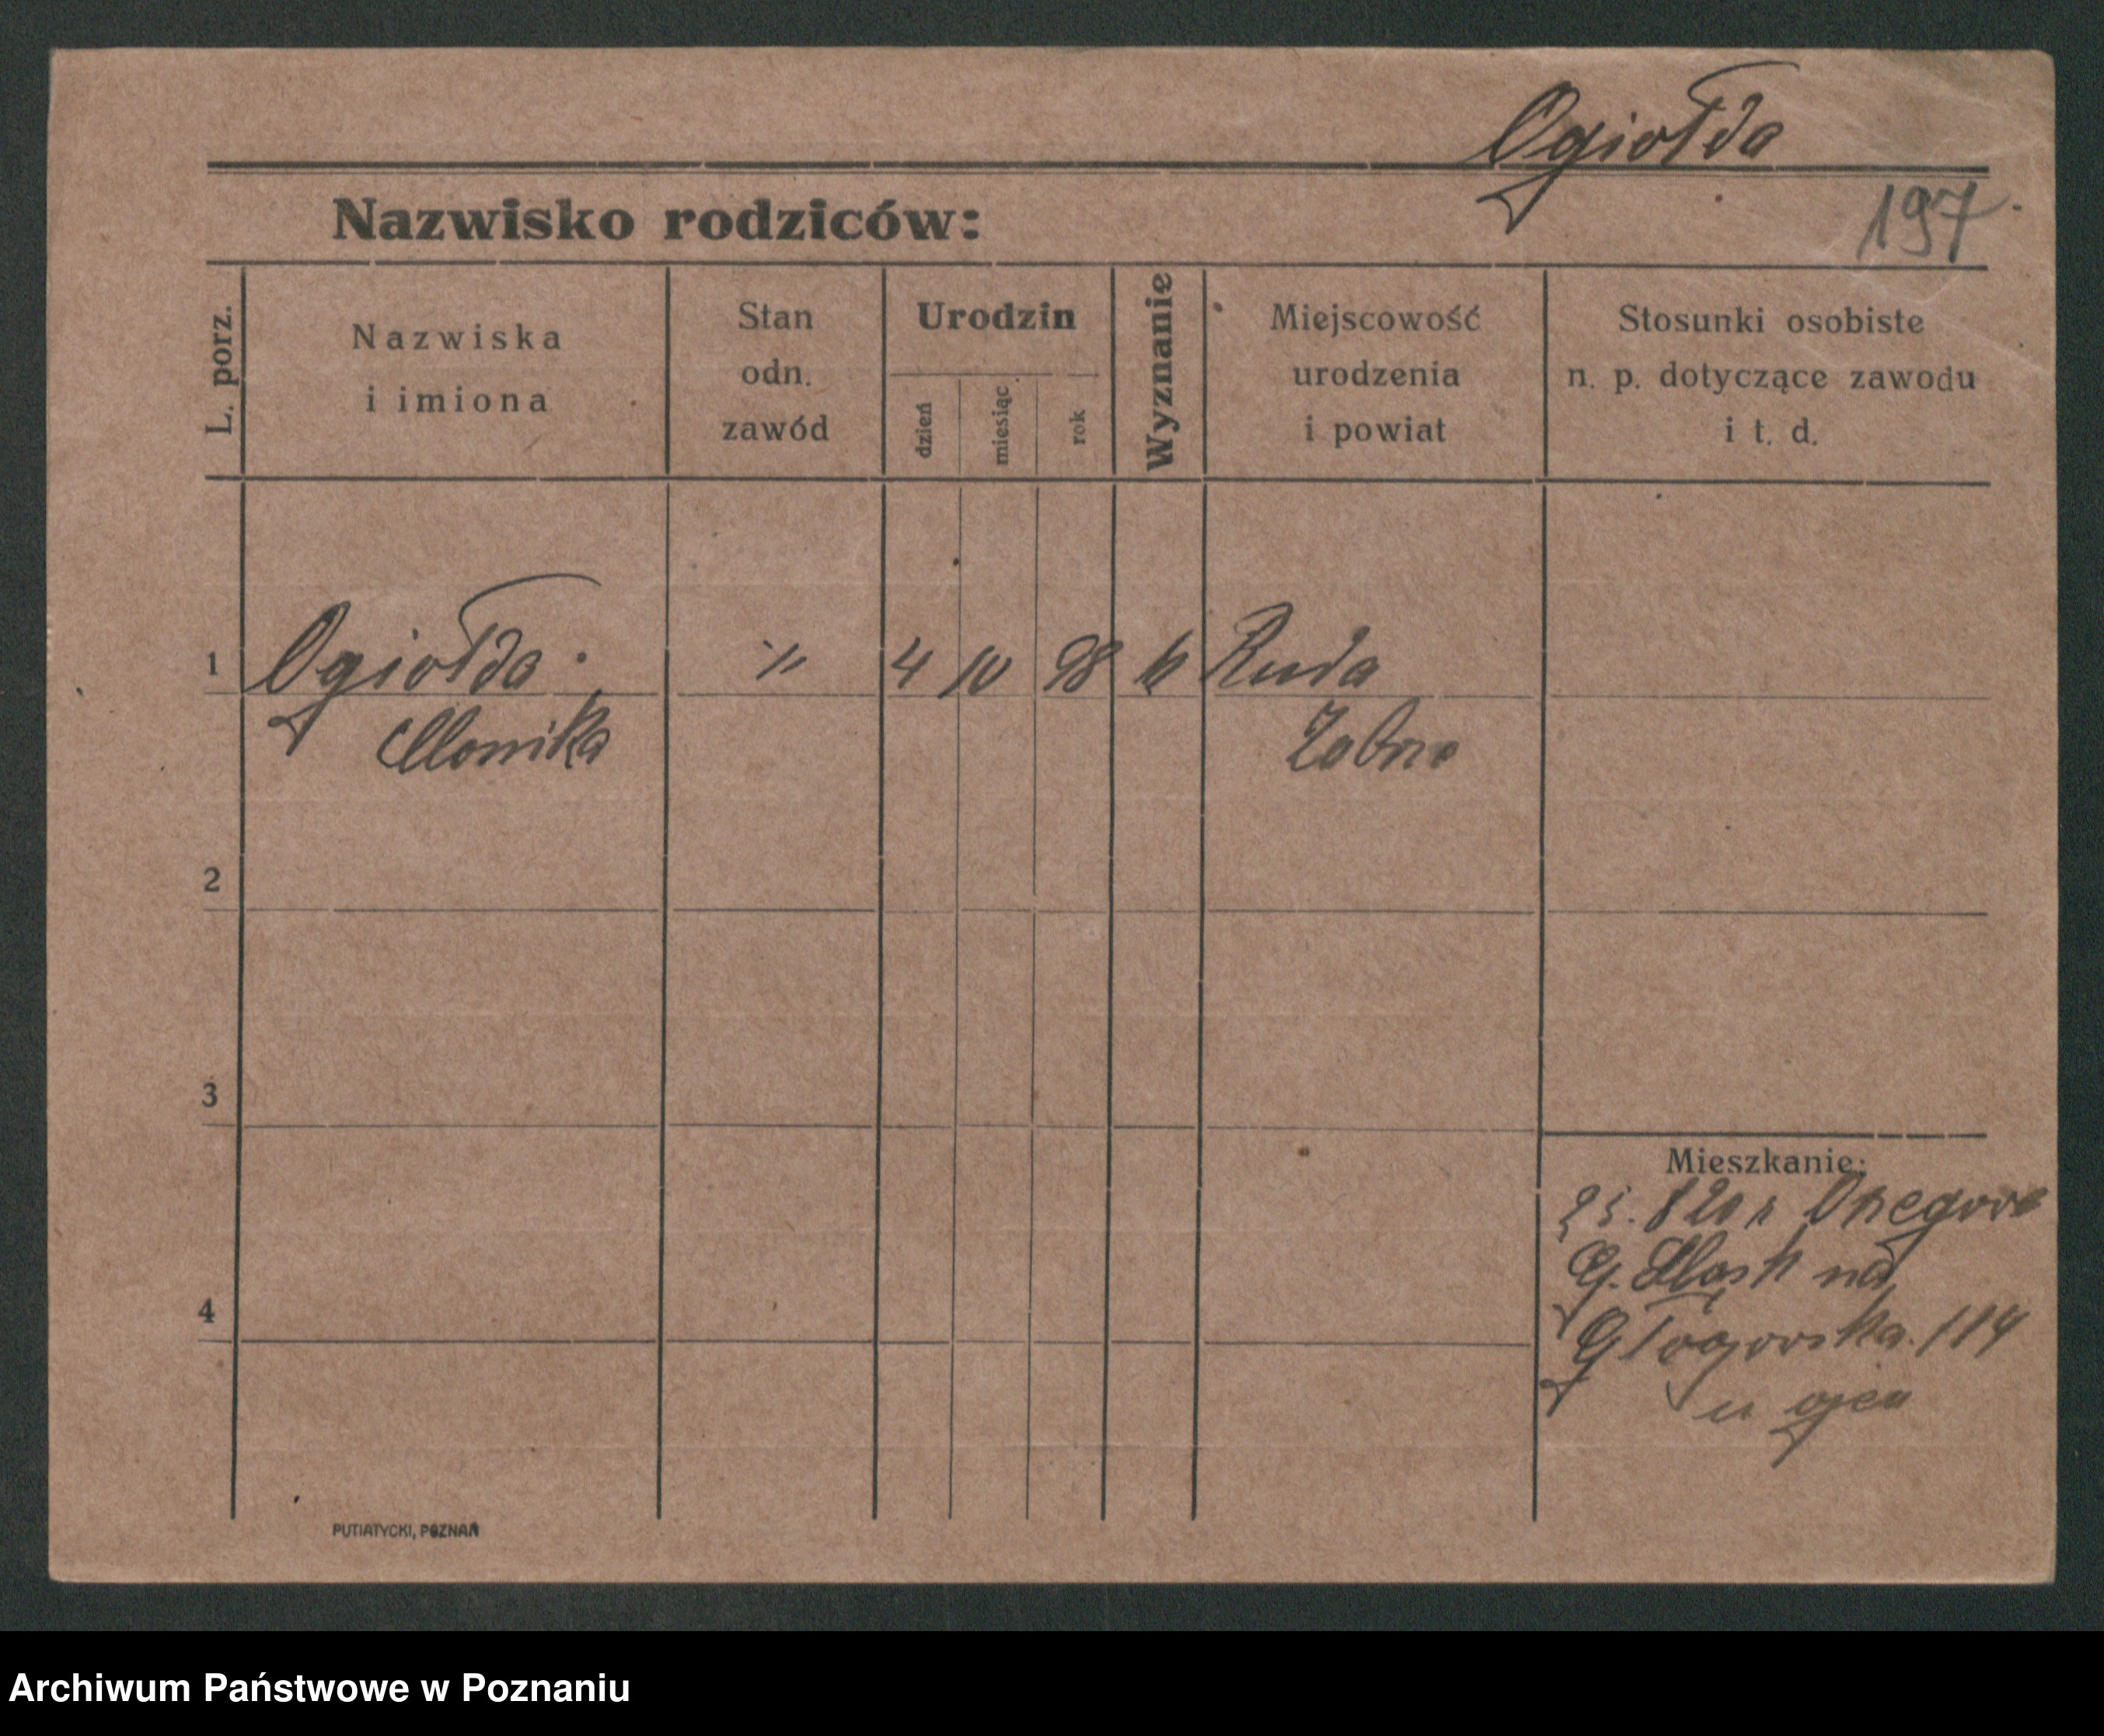 Ogiołda
197.
Nazwisko rodziców:
L. porz.
Nazwiska
i imiona
Stan
odn.
zawód
Urodzin
dzień
miesiąc
rok
Wyznanie
Miejscowość
urodzenia
i powiat
Stosunki osobiste
n. p. dotyczące zawodu
i t. d.
1 Ogiołda 4 10 98 k Ruda
Monika
2
3
4
Mieszkanie:
25. 8 20 z
G. Śląsk na
Głogowska 114
u ojca
PUTIATYCKI, POZNAŃ
Archiwum Państwowe w Poznaniu